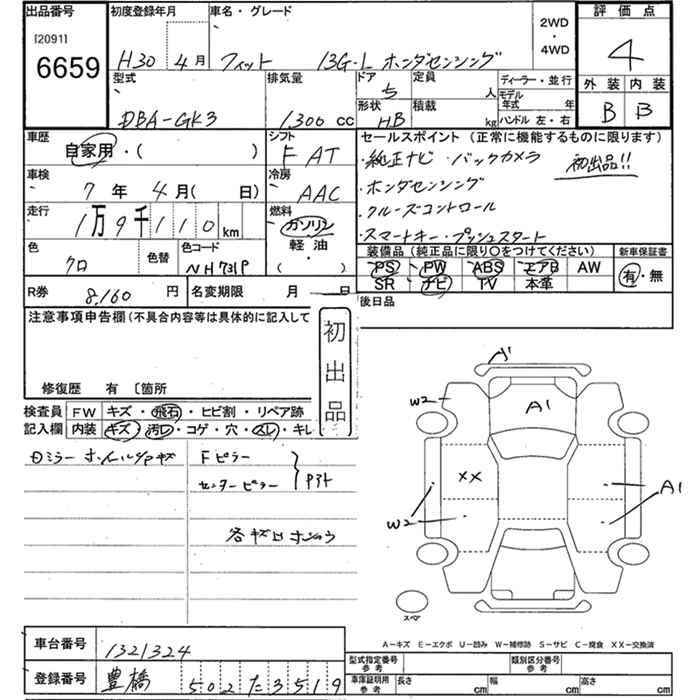 出品番号 初度登録年月 車名・グレード 2WD・4WD 評価点
[2091]
6659 H30年4月 フィット 13G・L ホンダセンシング 4
型式 排気量 ドア 5 定員 人 ディーラー・並行 外装 内装
モデル年式 年
DBA-GK3 1,300 cc 形状 HB 積載 kg ハンドル 左・右 B B
車歴 シフト セールスポイント (正常に機能するものに限ります)
自家用・( ) F AT ・純正ナビ ・バックカメラ 初出品!!
車検 冷房 ・ホンダセンシング
7年4月( 日) AAC ・クルーズコントロール
走行 燃料 ・スマートキー・プッシュスタート
1万9千110km ガソリン
色 色替 色コード 軽油 装備品 (純正品に限り○をつけてください) 新車保証書
クロ NH731P ( ・ ) PS PW ABS エアB AW 有・無
SR ナビ TV 本革
R券 8,160 円 名変期限 月 日 後日品
注意事項申告欄 (不具合内容等は具体的に記入して
初出品
修復歴 有 〔箇所
検査員 FW キズ・飛石・ヒビ割・リペア跡
記入欄 内装 キズ・汚レ・コゲ・穴・スレ・キレ
Fピラー
センターピラー
A'
W2
A1
XX
A1
W2
スペア
A-キズ E-エクボ U-凹み W-補修跡 S-サビ C-腐食 XX-交換済
車台番号 1321324
型式指定番号 参考 類別区分番号 参考
登録番号 豊橋 502 た 3519
車庫証明用 参考 長さ cm 幅 cm 高さ cm